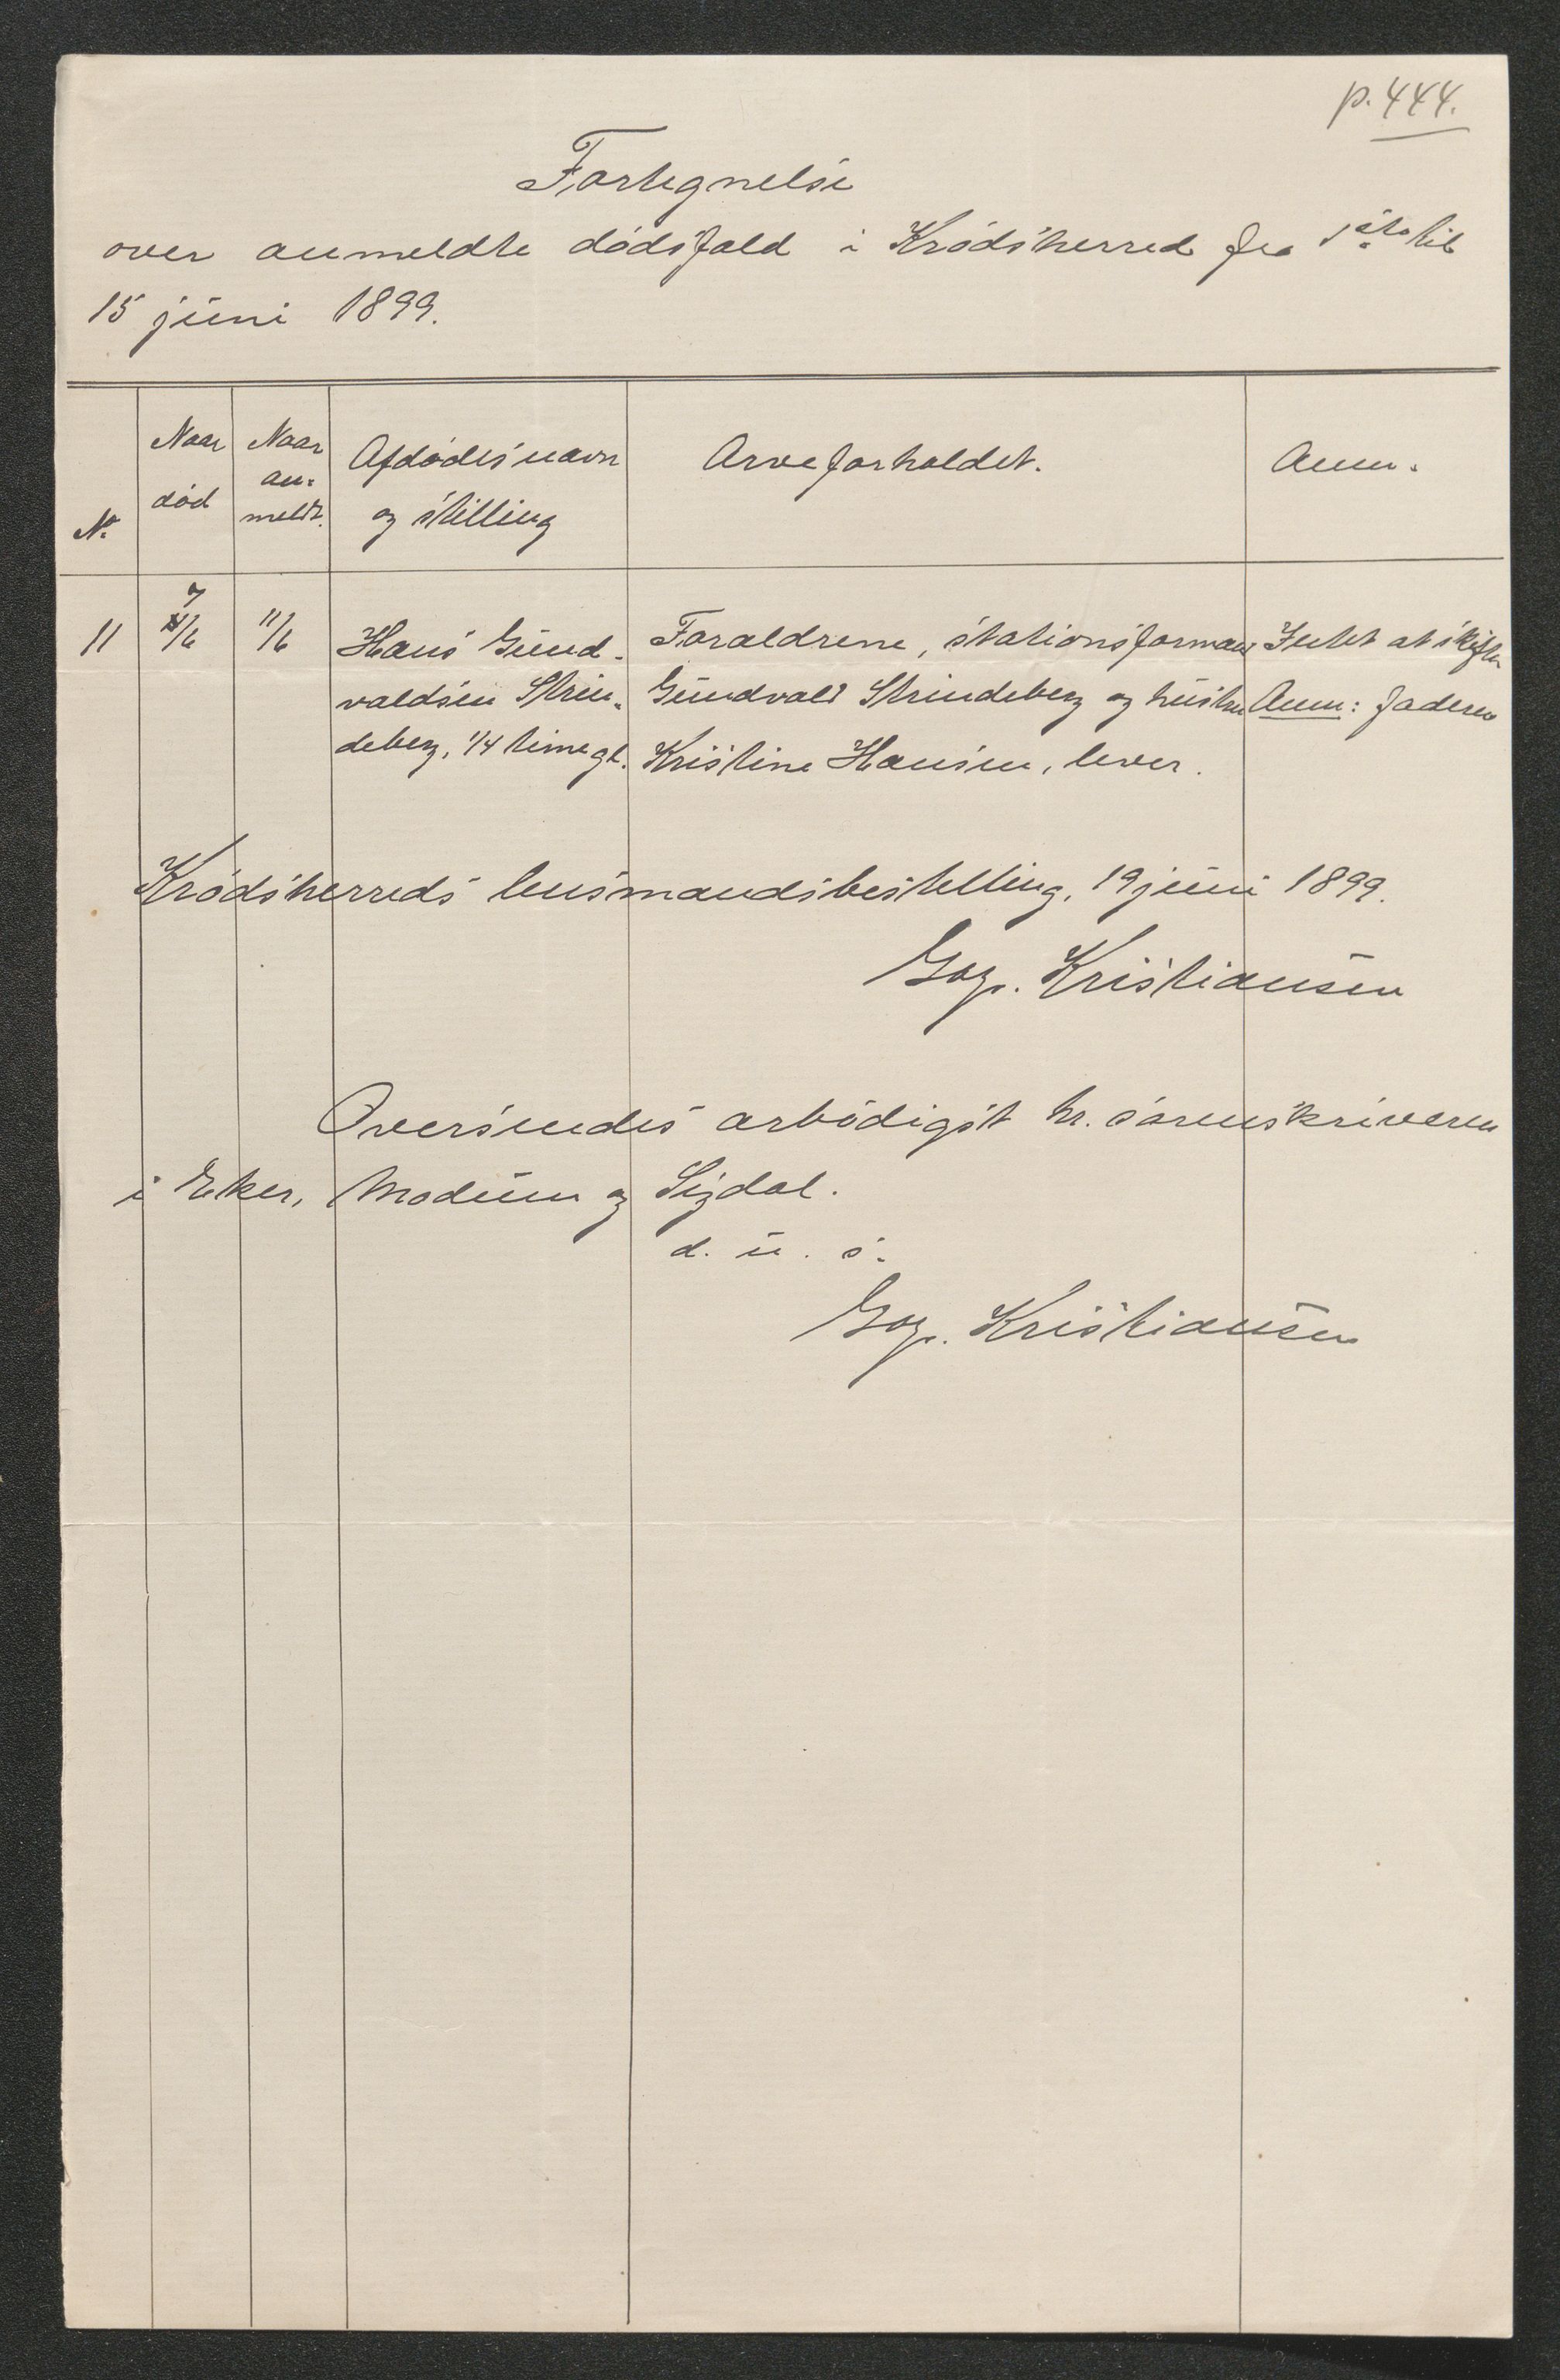 p. 444.
Fortegnelse
over anmeldte dødsfald i Krødsherred fra 1ste til
15 juni 1899.
No.
Naar død
Naar an-
meldt.
Afdødes navn
og stilling
Arveforholdet.
Anm.
11
7/6
11/6
Hans Gund-
valdsen Strin-
deberg, 1/4 time gl.
Forældrene, stationsformand
Gundvald Strindeberg og hustru
Kristine Hansen, lever.
Intet at skifte
Anm: faderen
Krødsherreds lensmandsbestilling, 19 juni 1899.
Kristiansen
Oversendes ærbødigst hr. sorenskriveren
i Eker, Modum og Sigdal.
d. u. s.
Kristiansen